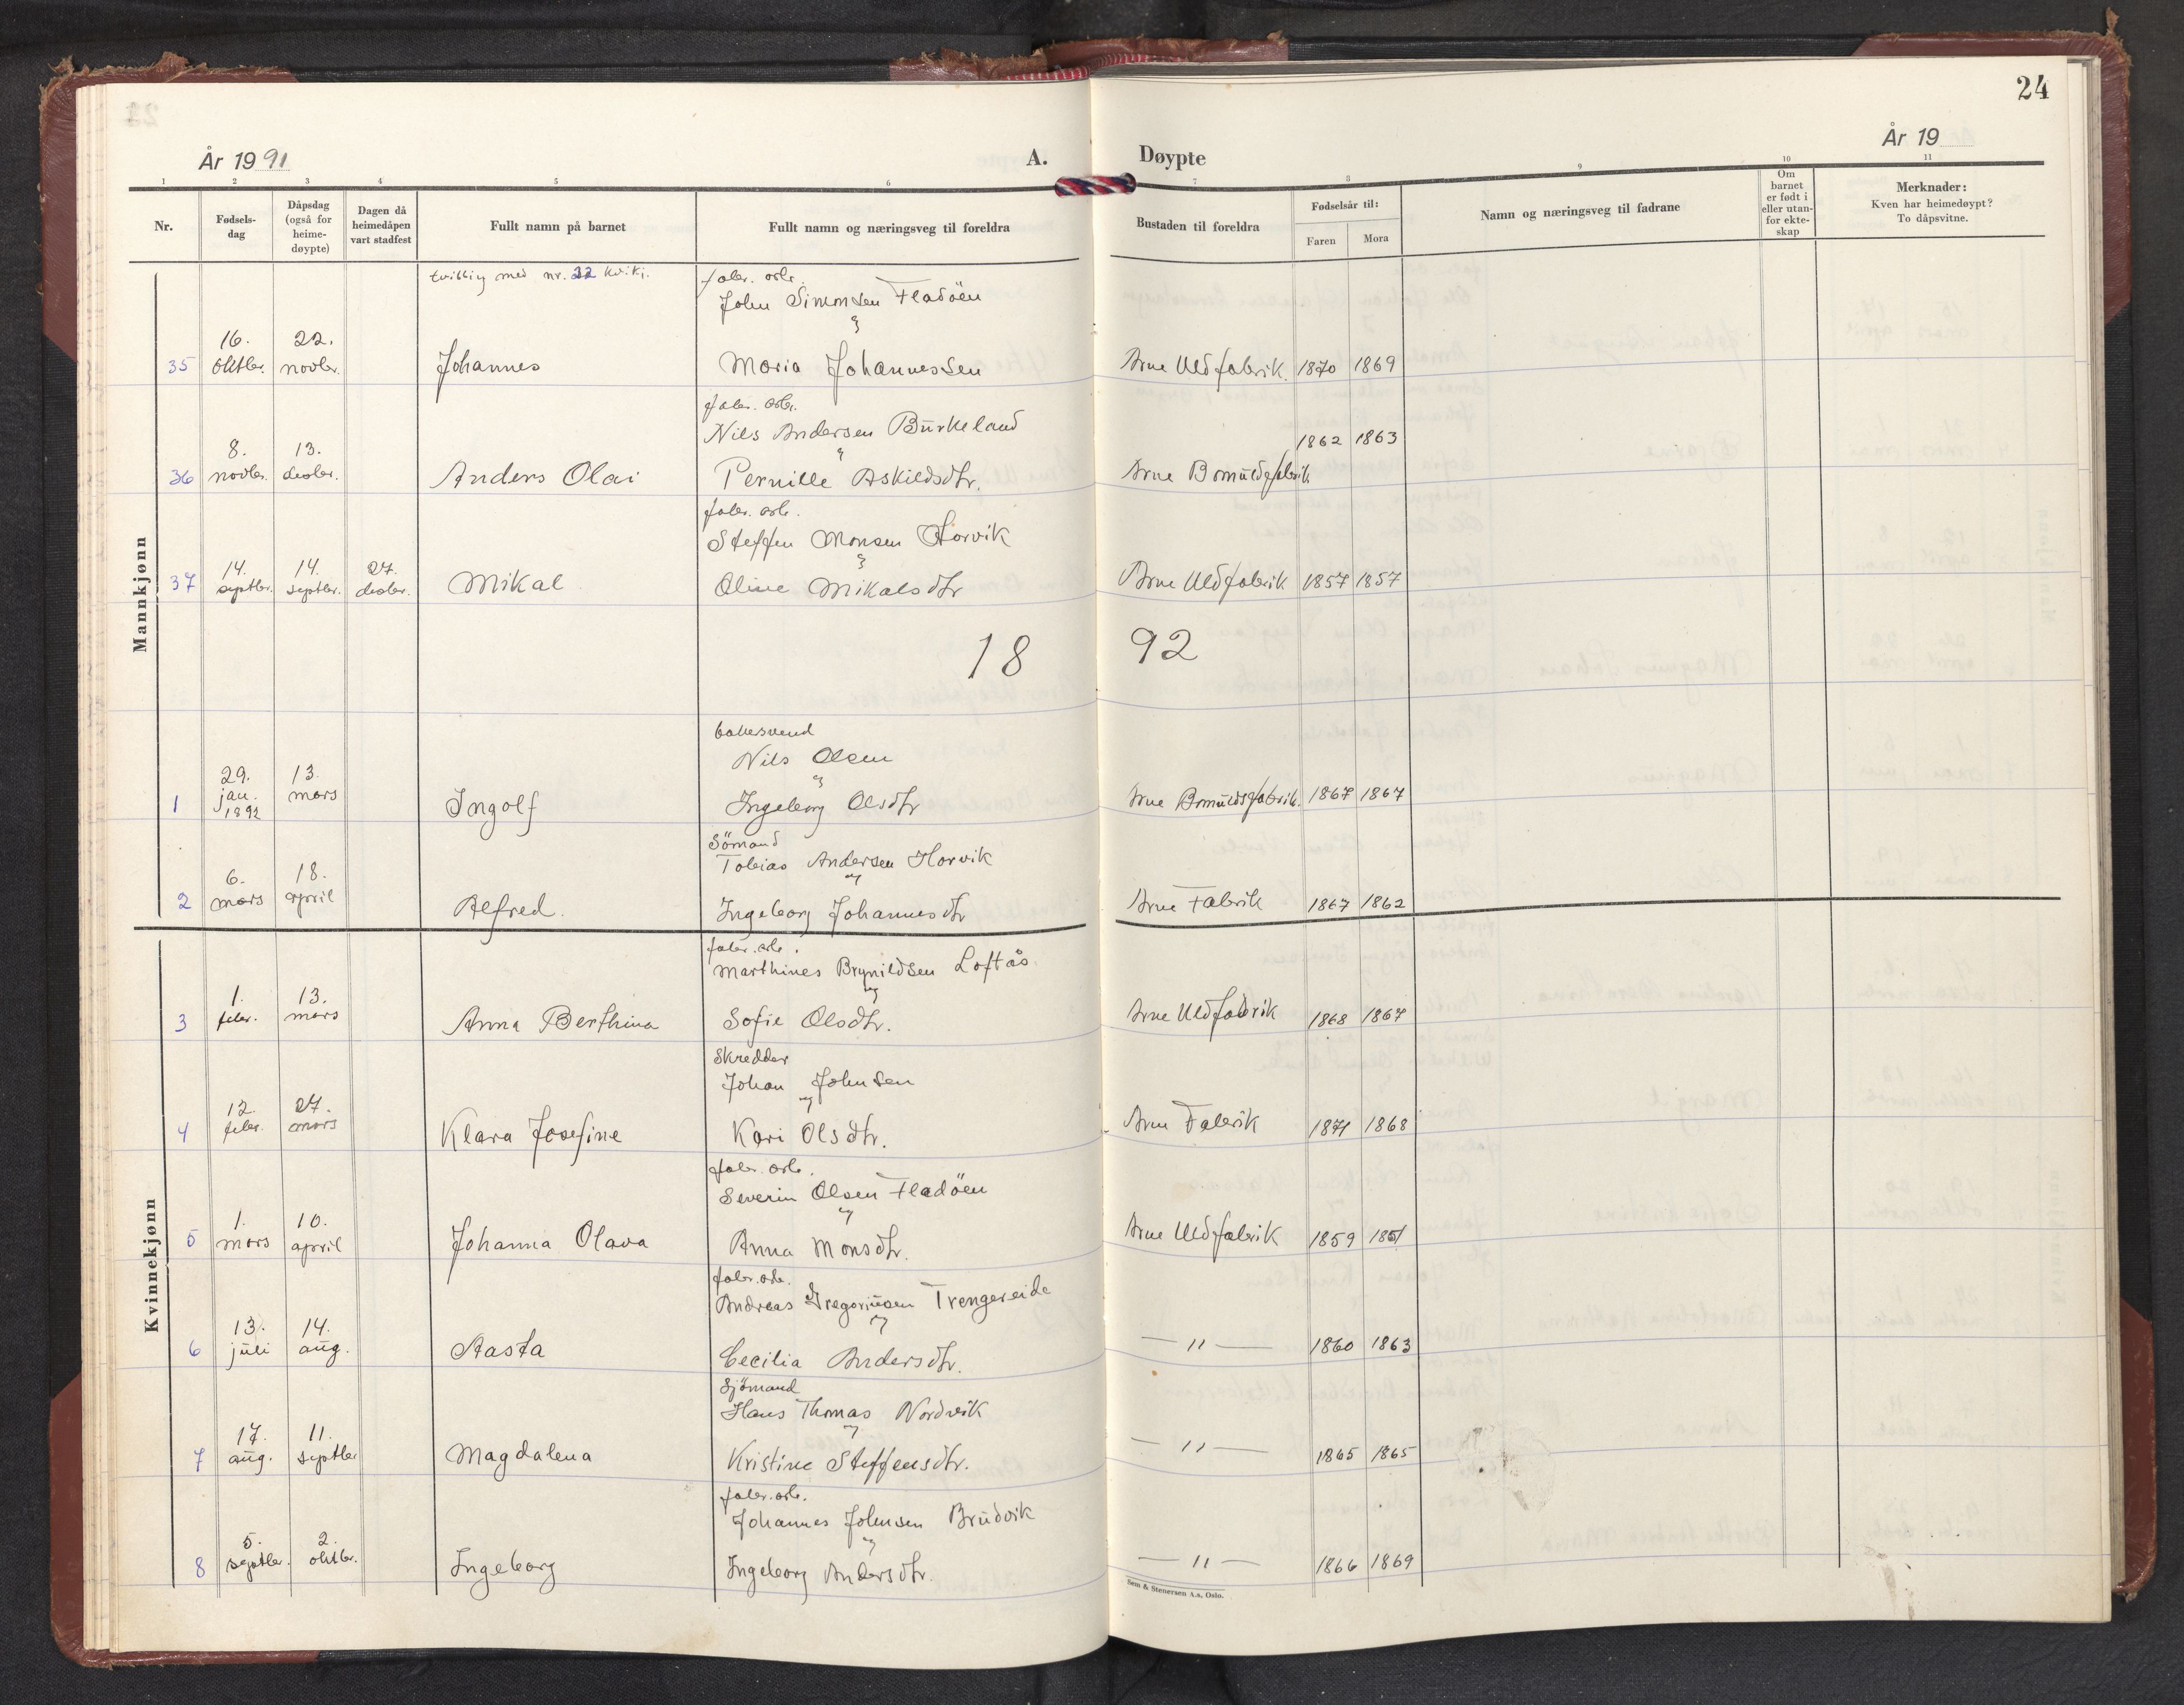 24
År 1991
A.
Døypte
År 19
1 2 3 4 5 6 7 8 9 10 11
Nr.
Fødsels-
dag
Dåpsdag
(også for
heime-
døypte)
Dagen då
heimedåpen
vart stadfest
Fullt namn på barnet
Fullt namn og næringsveg til foreldra
Bustaden til foreldra
Fødselsår til:
Faren Mora
Namn og næringsveg til fadrane
Om
barnet
er født i
eller utan-
for ekte-
skap
Merknader:
Kven har heimedøypt?
To dåpsvitne.
Mannkjønn
tvilling med nr. 22 kvikj.
fabr. arb.
John Simonsen Fladöen
&
35 16. oktbr. 22. novbr. Johannes Maria Johannessen Arne Uldfabrik 1870 1869
fabr. arb.
Nils Andersen Bürkeland
& 1862 1863
36 8. novbr. 13. desbr. Anders Olai Pernille Askildsdtr. Arne Bomüldsfabrik
fabr. arb.
Steffen Monsen Horvik
&
37 14. septbr. 14. septbr. 27. desbr. Mikal Oline Mikalsdtr Arne Uldfabrik 1857 1857
18 92
bakersvend
Nils Olsen
&
1 29. jan. 1892 13. mars Ingolf Ingeborg Olsdtr Arne Bomüldsfabrik 1867 1867
Sömand
Tobias Andersen Horvik
og
2 6. mars 18. april Alfred. Ingeborg Johannesdtr Arne Fabrik 1867 1862
Kvinnekjønn
fabr. arb.
Marthines Brynildsen Loftås
og
3 1. febr. 13. mars Anna Berthina Sofie Olsdtr. Arne Uldfabrik 1868 1867
Skredder
Johan Johnsen
og
4 12. febr. 27. mars Klara Josefine Kari Olsdtr. Arne Fabrik 1871 1868
fabr. arb.
Severin Olsen Fladöen
og
5 1. mars 10. april Johanna Olava Anna Monsdtr. Arne Uldfabrik 1859 1851
fabr. arb.
Andreas Gregoriüsen Trengereide
og
6 13. jüli 14. aüg. Aasta Cecilia Andersdtr. — " — 1860 1863
Sjömand
Hans Thomas Nordvik
og
7 17. aüg. 11. septbr Magdalena Kristine Steffensdtr. — " — 1865 1865
fabr. arb.
Johannes Johnsen Brüdvik
og
8 5. septbr. 2. oktbr. Ingeborg Ingeborg Andersdtr. — " — 1866 1869
Sem & Stenersen A.s, Oslo.